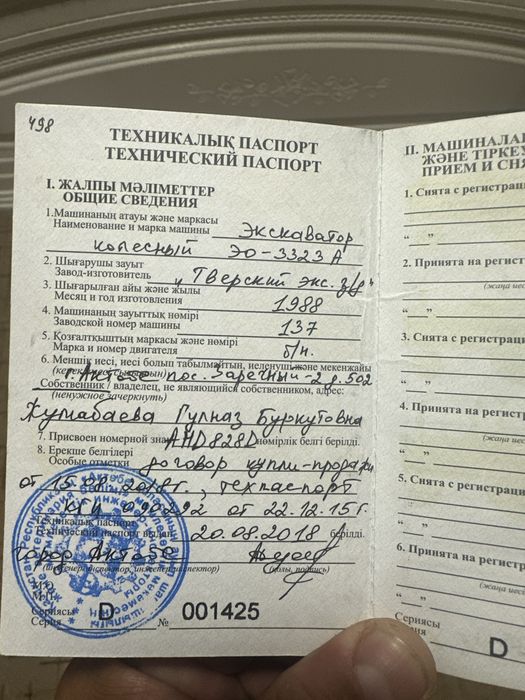 498
ТЕХНИКАЛЫҚ ПАСПОРТ
ТЕХНИЧЕСКИЙ ПАСПОРТ
I. ЖАЛПЫ МӘЛІМЕТТЕР
ОБЩИЕ СВЕДЕНИЯ
1.Машинаның атауы және маркасы
Наименование и марка машины Экскаватор
колесный ЭО-3323А
2. Шығарушы зауыт
Завод-изготовитель "Тверский экс. з/д"
3. Шығарылған айы және жылы
Месяц и год изготовления 1988
4. Машинаның зауыттық нөмірі
Заводской номер машины 137
5. Қозғалтқыштың маркасы және нөмірі
Марка и номер двигателя б/н.
6. Меншік иесі, иесі болып табылмайтын, иеленуші және мекенжайы
г. Актобе пос. Заречный-2 д. 502
Собственник / владелец, не являющийся собственником, адрес:
(ненужное зачеркнуть)
Жумабаева Гулназ Буркутовна
7. Присвоен номерной знак AHD828D нөмірлік белгі берілді.
8. Ерекше белгілері
Особые отметки договор купли-продажи
2018г., техпаспорт
от 22.12.15г.
Техникалық паспорт
Технический паспорт выдан 20.08.2018 берілді.
город Актобе
(инженер-инспектор, инженер-инспектор) (қолы, подпись)
М.О.
М.П.
Сериясы
Серия D № 001425
II. МАШИНАЛА
ЖӘНЕ ТІРКЕУ
ПРИЕМ И СНЯ
1. Снята с регистрац
" "
2. Принята на регист
(жаңа иес
" "
3. Снята с регистрац
" "
4. Принята на регистр
(жаңа иес
" "
5. Снята с регистрац
" "
6. Принята на регистр
(жаңа иес
" "
Сериясы
Серия D